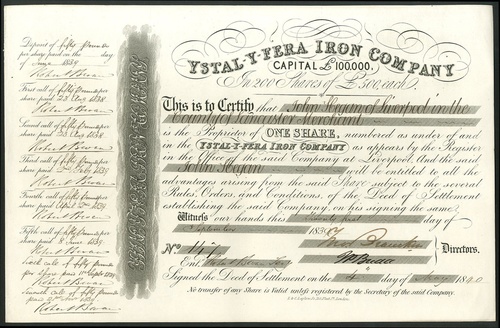 Deposit of fifty Pounds
per share paid on the day
of June 1839
Robert Bevan
First call of fifty Pounds per
share paid 23 Aug 1838
Robert Bevan
Second call of fifty Pounds per
share paid
Robert Bevan
Third call of fifty Pounds per
share paid Feb 1839
Robert Bevan
Fourth call of fifty Pounds per
share paid 1839
Robert Bevan
Fifth call of fifty Pounds per
share paid 8 June 1839
Robert Bevan
Sixth call of fifty Pounds
per share paid Sept 1839
Robert Bevan
Seventh call of fifty Pounds
per share paid 1839
Robert Bevan
YSTAL-Y-FERA IRON COMPANY
CAPITAL £100,000.
In 200 Shares of £500 each.
This is to Certify that John Hogan of Liverpool in the
County of Lancaster Merchant
is the Proprietor of ONE SHARE, numbered as under of and
in the YSTAL-Y-FERA IRON COMPANY as appears by the Register
in the Office of the said Company at Liverpool. And the said
John Hogan will be entitled to all the
advantages arising from the said Share subject to the several
Rules, Orders, and Conditions, of the Deed of Settlement
establishing the said Company, on his signing the same.
Witness our hands this Twenty first day of
September 183
No.
Directors.
Signed the Deed of Settlement on the day of May 1840
No transfer of any Share is Valid unless registered by the Secretary of the said Company.